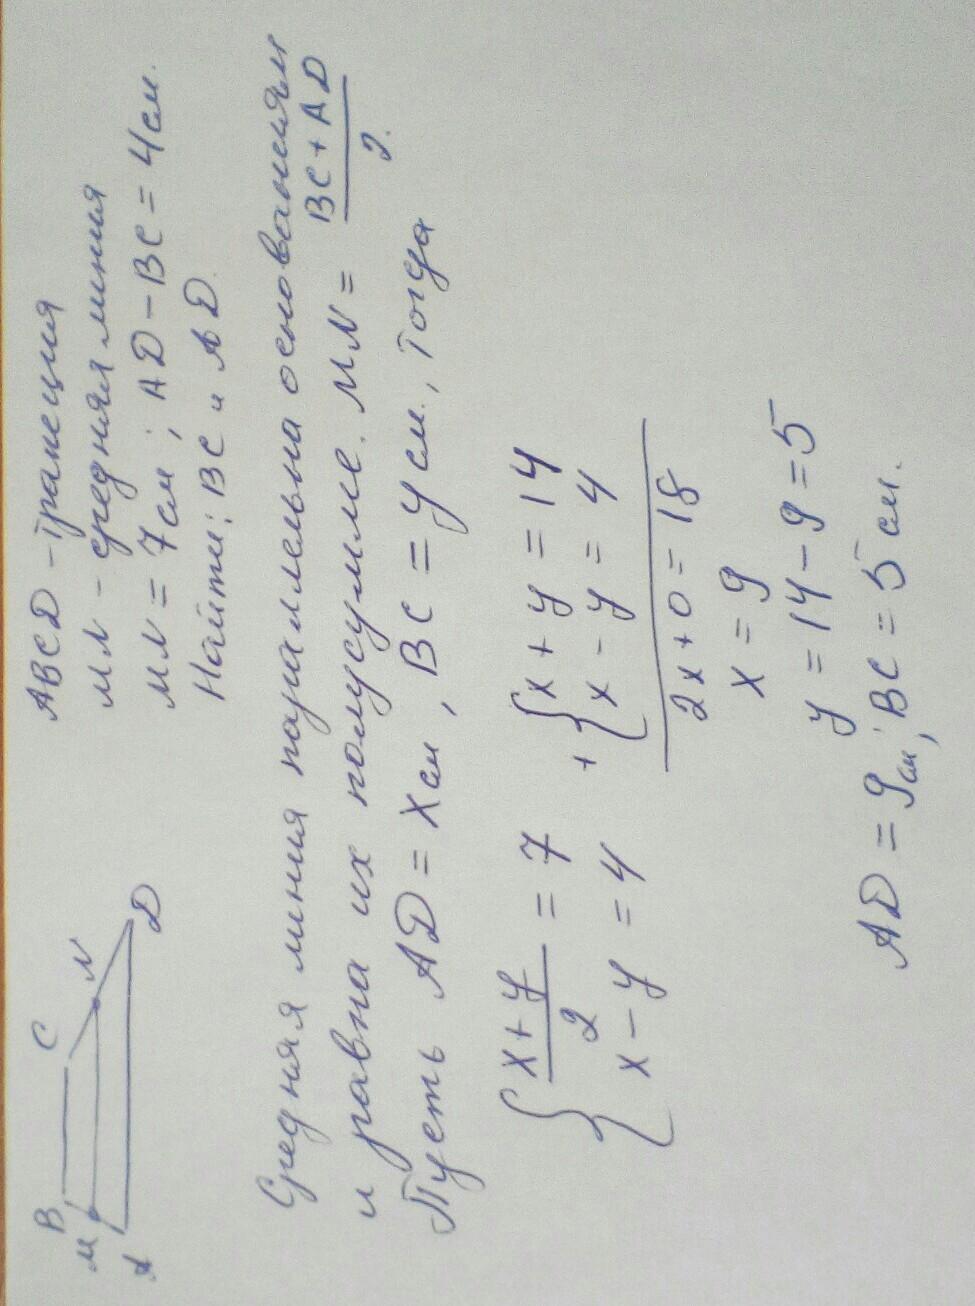 B C
M N
A D
ABCD - трапеция
MN - средняя линия
MN = 7 см ; AD - BC = 4 см.
Найти: BC и AD.
Средняя линия параллельна основаниям
и равна их полусумме. MN = \frac{BC + AD}{2}.
Пусть AD = x см, BC = y см., тогда
{ \frac{x + y}{2} = 7 + { x + y = 14
x - y = 4 x - y = 4
2x + 0 = 18
x = 9
y = 14 - 9 = 5
AD = 9 см; BC = 5 см.